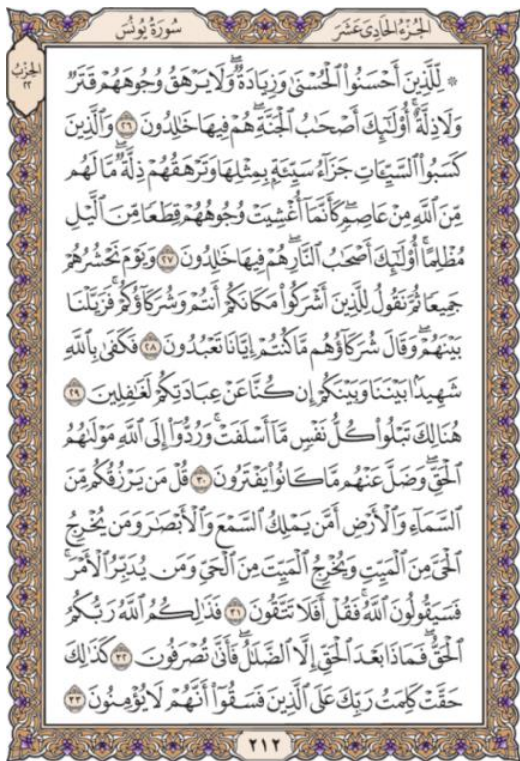 الجزء الحادي عشر
سورة يونس
الحزب
٢٢
۞ لِّلَّذِينَ أَحْسَنُوا۟ ٱلْحُسْنَىٰ وَزِيَادَةٌ ۖ وَلَا يَرْهَقُ وُجُوهَهُمْ قَتَرٌ
وَلَا ذِلَّةٌ ۚ أُو۟لَـٰٓئِكَ أَصْحَـٰبُ ٱلْجَنَّةِ ۖ هُمْ فِيهَا خَـٰلِدُونَ ٢٦ وَٱلَّذِينَ
كَسَبُوا۟ ٱلسَّيِّـَٔاتِ جَزَآءُ سَيِّئَةٍۭ بِمِثْلِهَا وَتَرْهَقُهُمْ ذِلَّةٌ ۖ مَّا لَهُم
مِّنَ ٱللَّهِ مِنْ عَاصِمٍ ۖ كَأَنَّمَآ أُغْشِيَتْ وُجُوهُهُمْ قِطَعًا مِّنَ ٱلَّيْلِ
مُظْلِمًا ۚ أُو۟لَـٰٓئِكَ أَصْحَـٰبُ ٱلنَّارِ ۖ هُمْ فِيهَا خَـٰلِدُونَ ٢٧ وَيَوْمَ نَحْشُرُهُمْ
جَمِيعًا ثُمَّ نَقُولُ لِلَّذِينَ أَشْرَكُوا۟ مَكَانَكُمْ أَنتُمْ وَشُرَكَآؤُكُمْ ۚ فَزَيَّلْنَا
بَيْنَهُمْ ۖ وَقَالَ شُرَكَآؤُهُم مَّا كُنتُمْ إِيَّانَا تَعْبُدُونَ ٢٨ فَكَفَىٰ بِٱللَّهِ
شَهِيدًۢا بَيْنَنَا وَبَيْنَكُمْ إِن كُنَّا عَنْ عِبَادَتِكُمْ لَغَـٰفِلِينَ ٢٩
هُنَالِكَ تَبْلُوا۟ كُلُّ نَفْسٍ مَّآ أَسْلَفَتْ ۚ وَرُدُّوٓا۟ إِلَى ٱللَّهِ مَوْلَىٰهُمُ
ٱلْحَقِّ ۖ وَضَلَّ عَنْهُم مَّا كَانُوا۟ يَفْتَرُونَ ٣٠ قُلْ مَن يَرْزُقُكُم مِّنَ
ٱلسَّمَآءِ وَٱلْأَرْضِ أَمَّن يَمْلِكُ ٱلسَّمْعَ وَٱلْأَبْصَـٰرَ وَمَن يُخْرِجُ
ٱلْحَىَّ مِنَ ٱلْمَيِّتِ وَيُخْرِجُ ٱلْمَيِّتَ مِنَ ٱلْحَىِّ وَمَن يُدَبِّرُ ٱلْأَمْرَ ۚ
فَسَيَقُولُونَ ٱللَّهُ ۚ فَقُلْ أَفَلَا تَتَّقُونَ ٣١ فَذَٰلِكُمُ ٱللَّهُ رَبُّكُمُ
ٱلْحَقُّ ۖ فَمَاذَا بَعْدَ ٱلْحَقِّ إِلَّا ٱلضَّلَـٰلُ ۖ فَأَنَّىٰ تُصْرَفُونَ ٣٢ كَذَٰلِكَ
حَقَّتْ كَلِمَتُ رَبِّكَ عَلَى ٱلَّذِينَ فَسَقُوٓا۟ أَنَّهُمْ لَا يُؤْمِنُونَ ٣٣
٢١٢